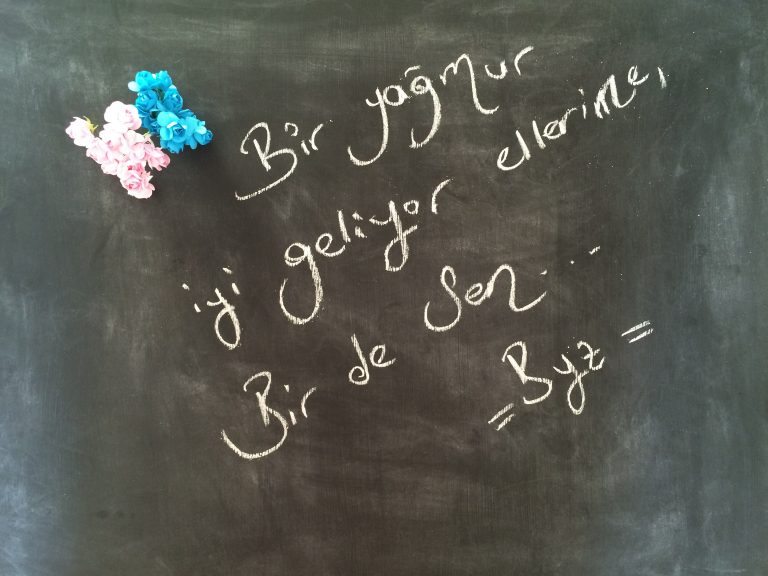 Bir yağmur
iyi geliyor ellerime,
Bir de sen...
=Byz=